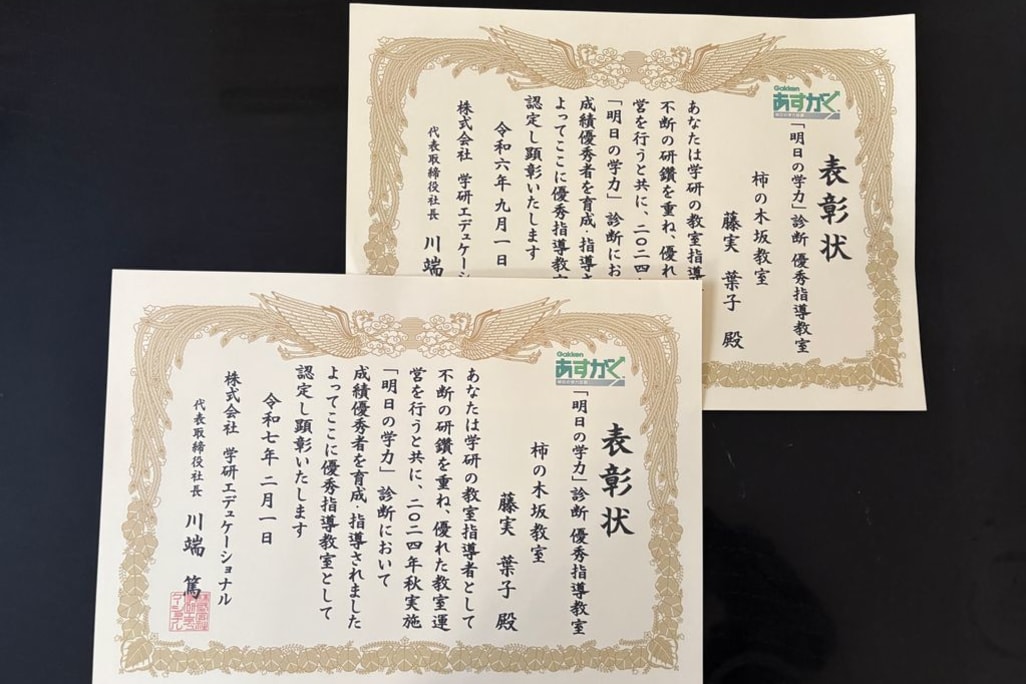 Gakken
あすがく
表彰状
「明日の学力」診断 優秀指導教室
柿の木坂教室
藤実 葉子 殿
あなたは学研の教室指導
不断の研鑽を重ね、優れ
営を行うと共に、二〇二四
「明日の学力」診断にお
成績優秀者を育成・指導
よってここに優秀指導教
認定し顕彰いたします
令和六年九月一日
株式会社 学研エデュケーシ
代表取締役社長 川端
Gakken
あすがく
表彰状
「明日の学力」診断 優秀指導教室
柿の木坂教室
藤実 葉子 殿
あなたは学研の教室指導者として
不断の研鑽を重ね、優れた教室運
営を行うと共に、二〇二四年秋実施
「明日の学力」診断において
成績優秀者を育成・指導されました
よってここに優秀指導教室として
認定し顕彰いたします
令和七年 二月一日
株式会社 学研エデュケーショナル
代表取締役社長 川端 篤